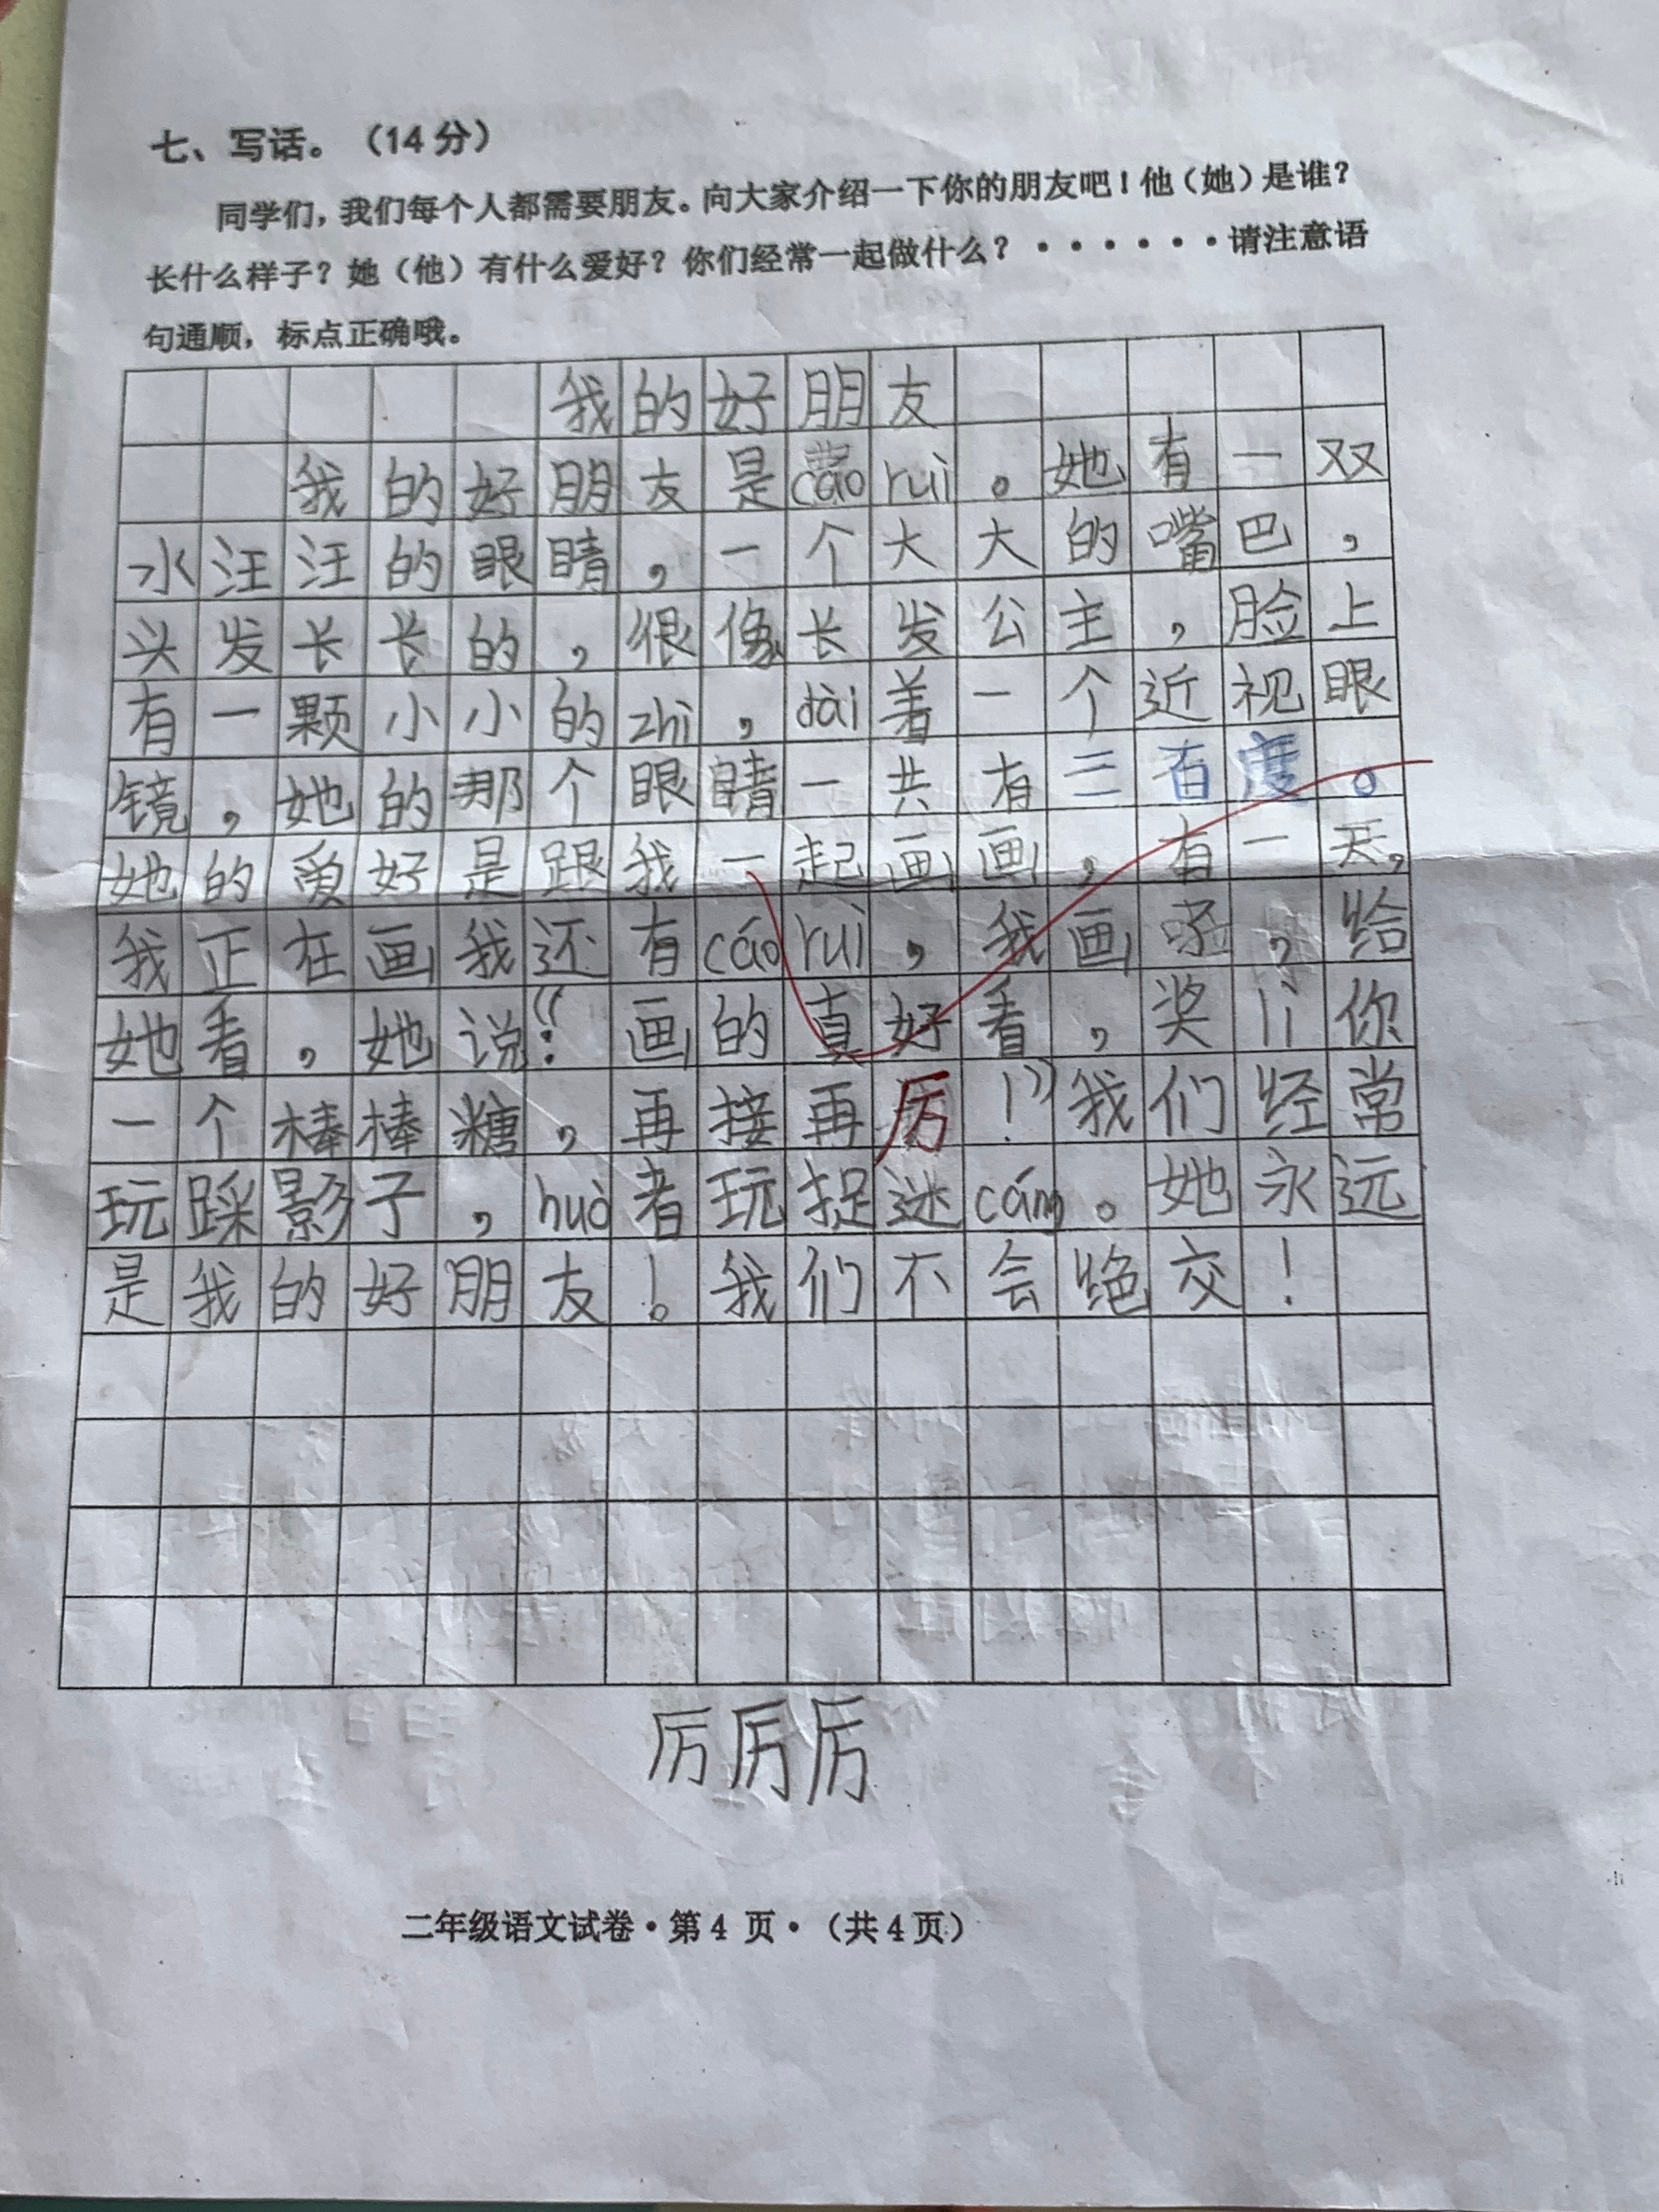 七、写话。（14分）
同学们，我们每个人都需要朋友。向大家介绍一下你的朋友吧！他（她）是谁？
长什么样子？她（他）有什么爱好？你们经常一起做什么？······请注意语
句通顺，标点正确哦。
我的好朋友
我的好朋友是cáo ruì。她有一双
水汪汪的眼睛，一个大大的嘴巴，
头发长长的，很像长发公主，脸上
有一颗小小的zhì，dài着一个近视眼
镜，她的那个眼睛一共有三百度。
她的爱好是跟我一起画画，有一天，
我正在画我还有cáo ruì，我画，给
她看，她说：“画的真好看，奖lì你
一个棒棒糖，再接再厉！”我们经常
玩踩影子，huò者玩捉迷cáng。她永远
是我的好朋友！。我们不会绝交！
厉厉厉
二年级语文试卷·第4页·（共4页）